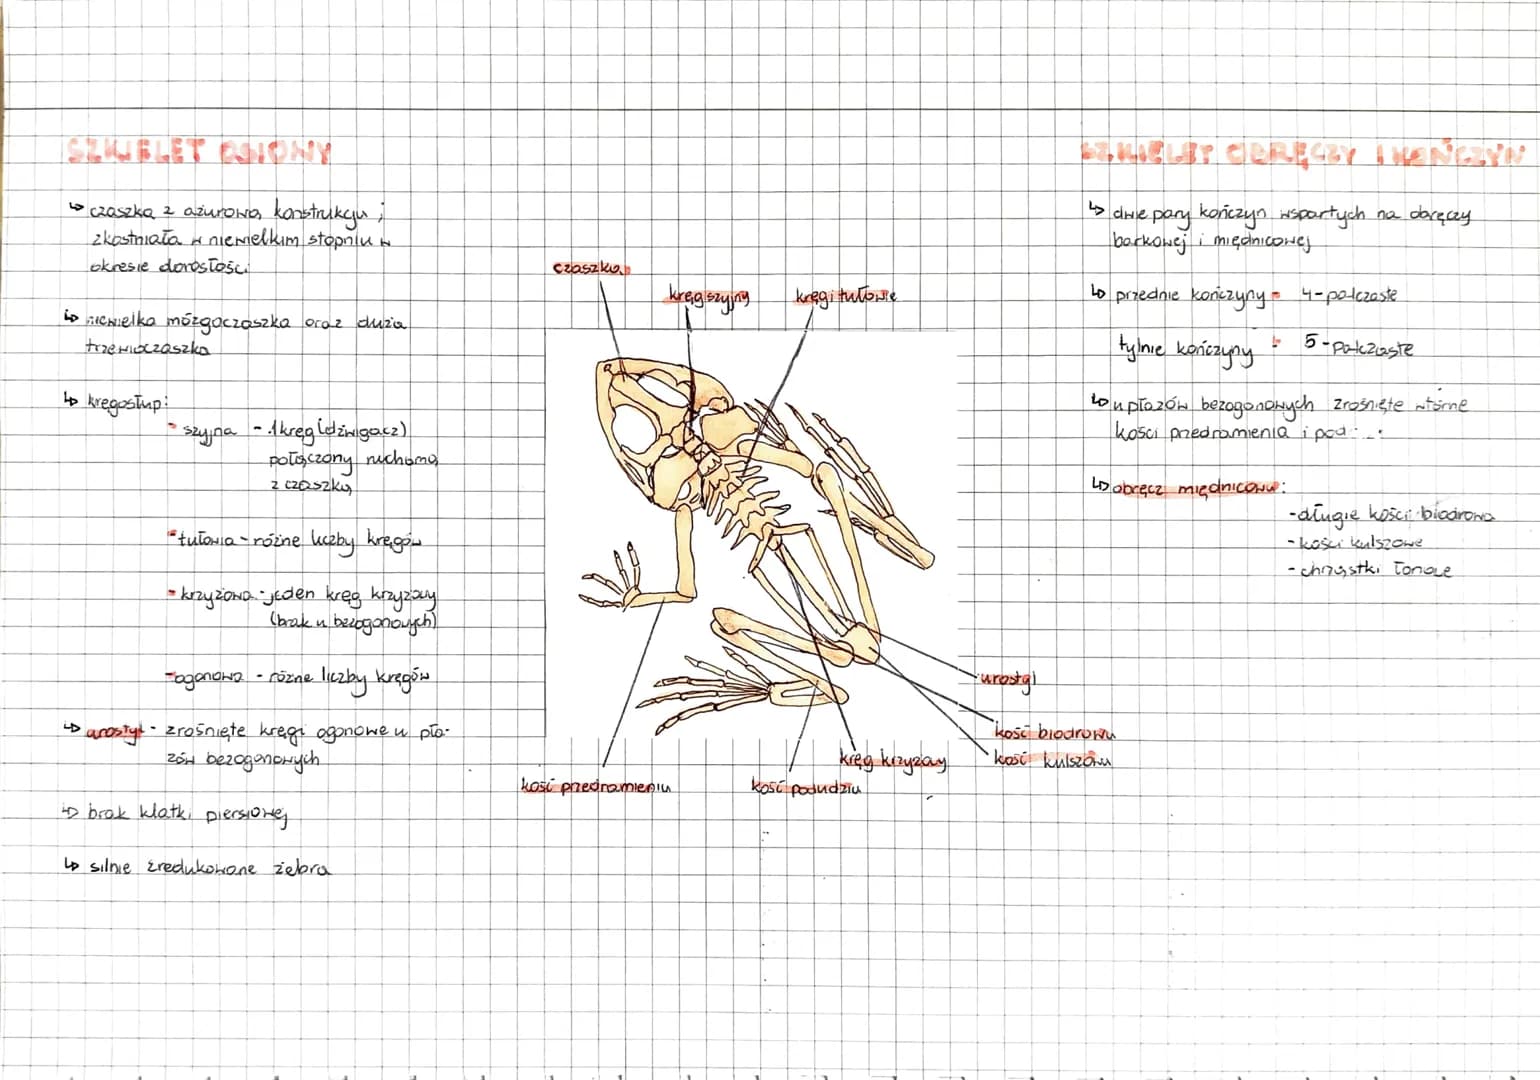 SZKIELET OSIOWY
↳ czaszka z ażurową konstrukcją ;
zkostniała w niewielkim stopniu w
okresie dorosłości
↳ niewielka mózgoczaszka oraz duża
trzewioczaszka
↳ kręgosłup:
- szyjna - 1 kręg (dźwigacz)
połączony ruchomą
z czaszką
- tułowia - różne liczby kręgów
- krzyżowa - jeden kręg krzyżowy
(brak u bezogonowych)
- ogonowa - różne liczby kręgów
↳ urostyl - zrośnięte kręgi ogonowe u pła-
zów bezogonowych
↳ brak klatki piersiowej
↳ silnie zredukowane żebra
czaszka
kręg szyjny
kręgi tułowie
urostyl
kość biodrowa
kość kulszowa
kręg krzyżowy
kość podudzia
kość przedramienia
SZKIELET OBRĘCZY I KOŃCZYN
↳ dwie pary kończyn wspartych na obręczy
barkowej i miednicowej
↳ przednie kończyny - 4-palczaste
tylnie kończyny - 5-palczaste
↳ u płazów bezogonowych zrośnięte wtórne
kości przedramienia i
↳ obręcz miednicowa:
- długie kości biodrowe
- kości kulszowe
- chrząstki łonowe